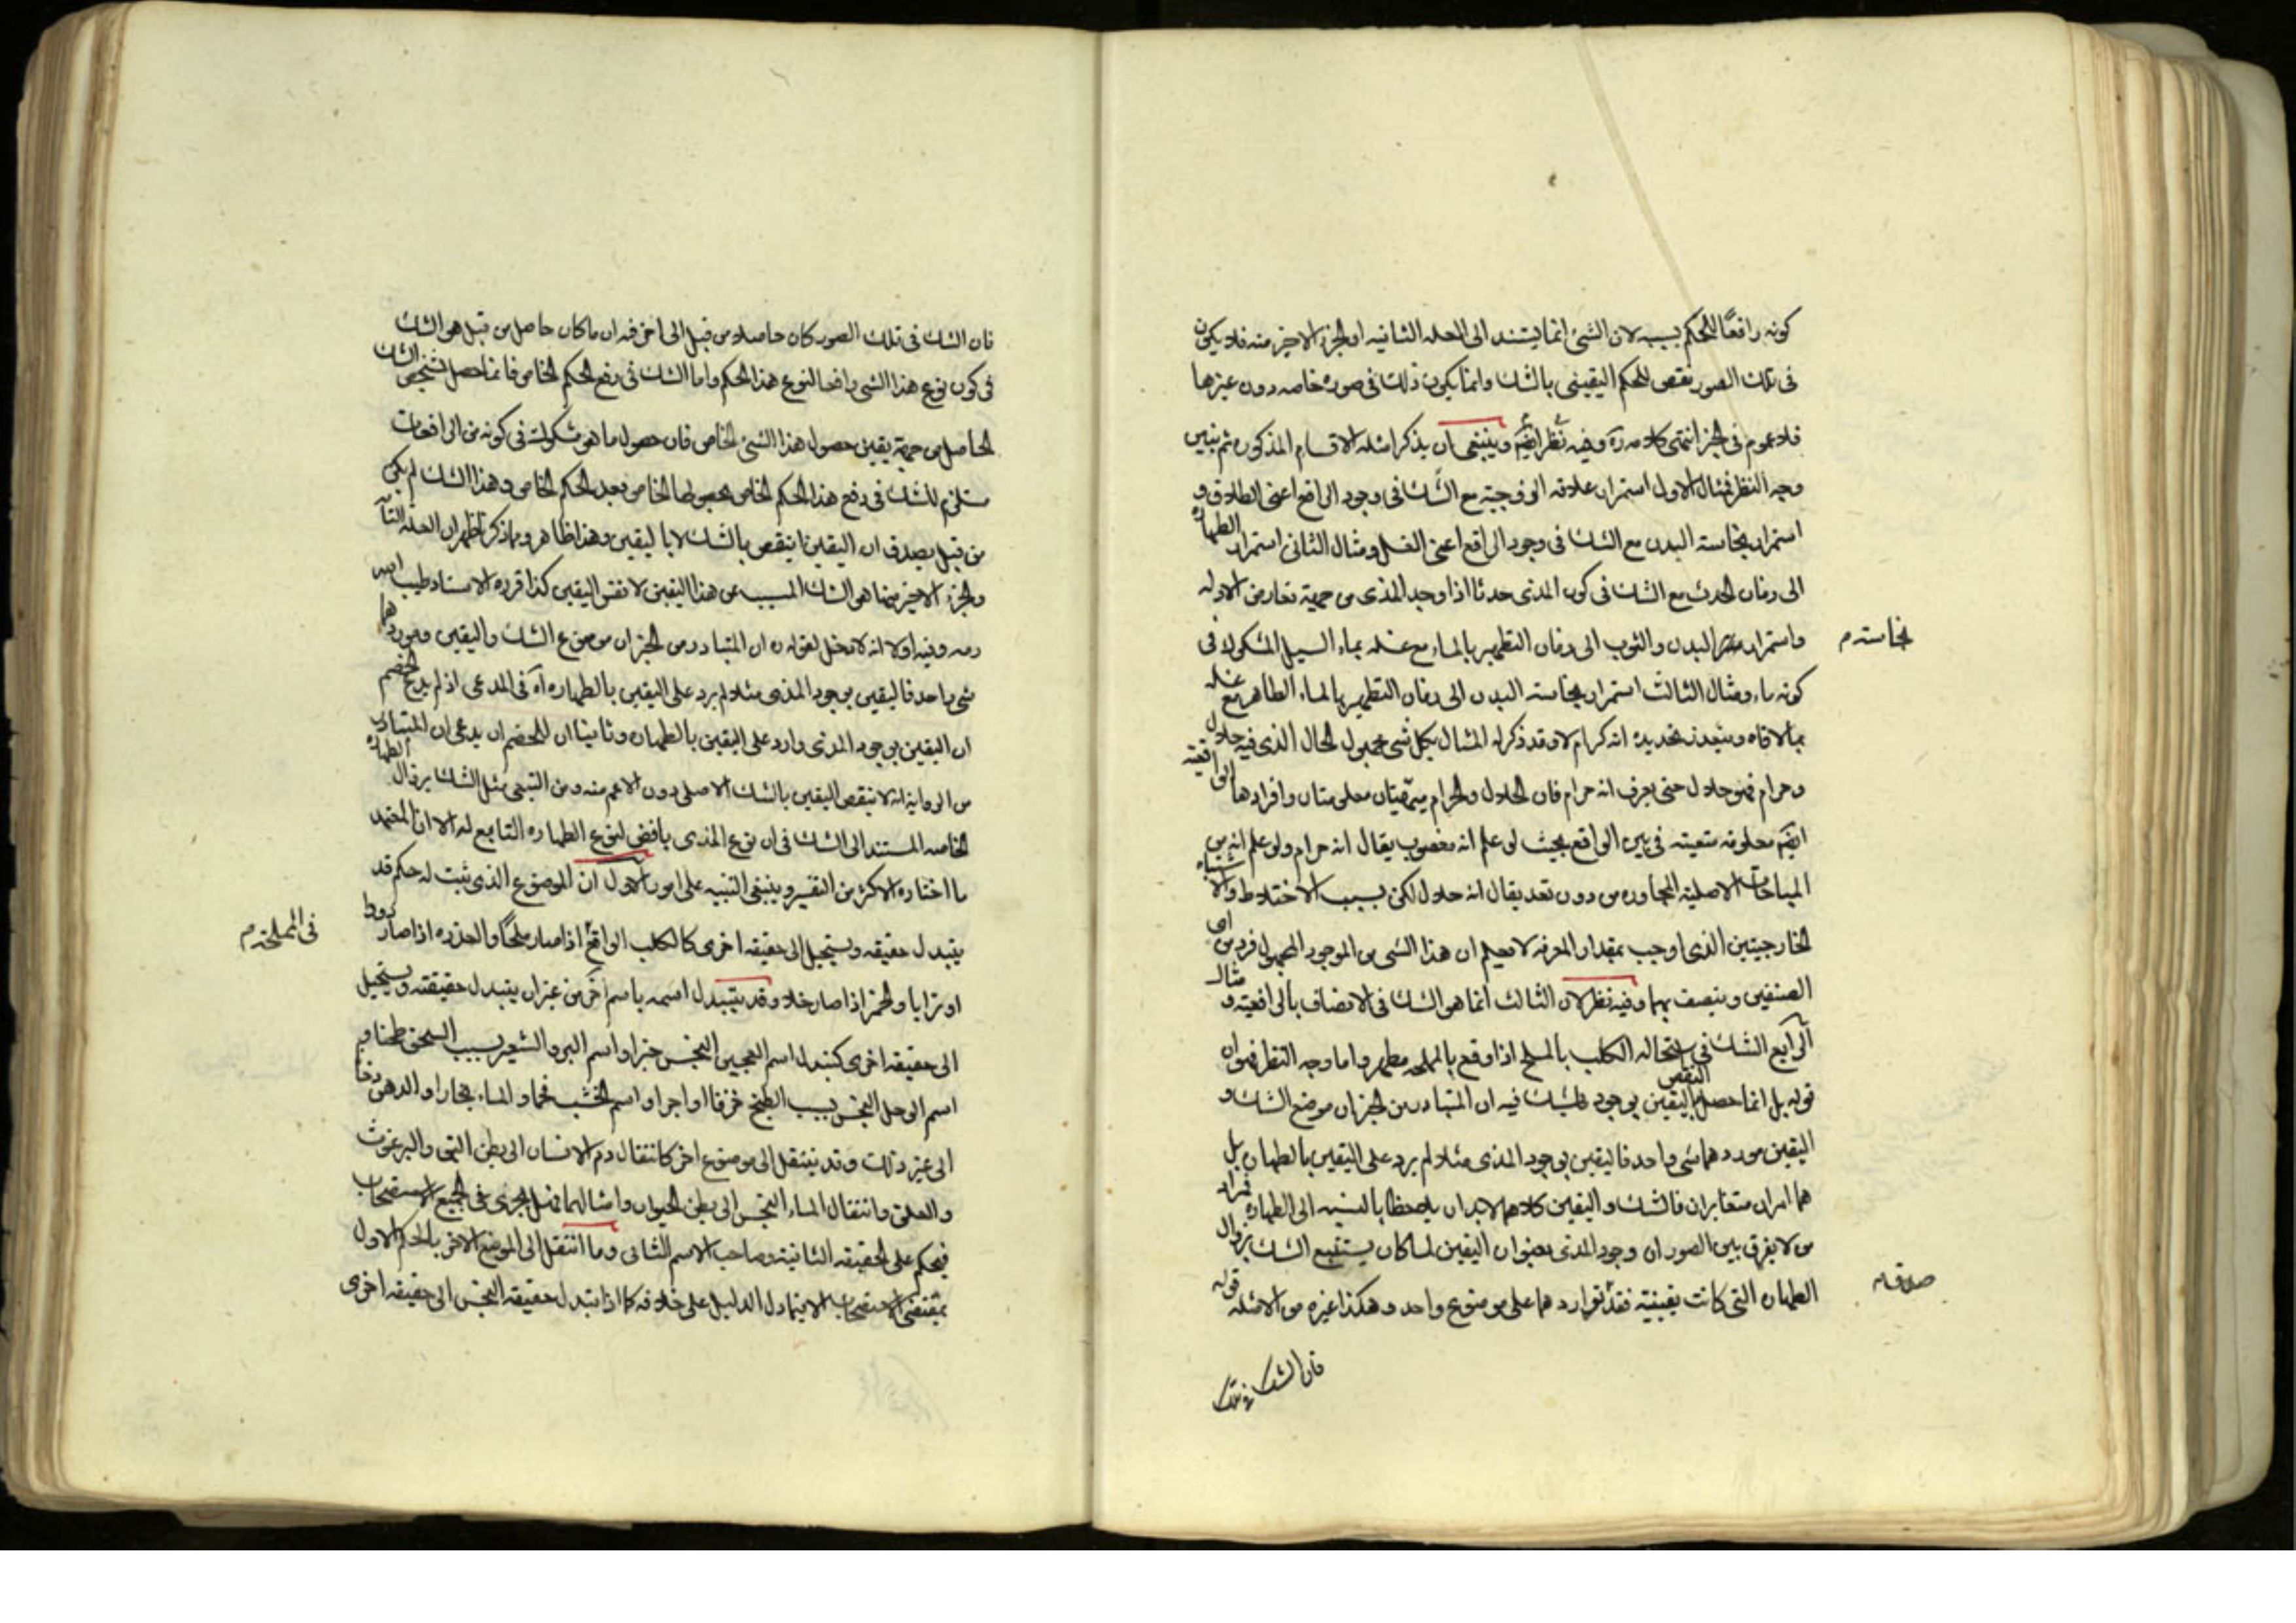 كونه رافعًا للحكم بسببه لان الشئ انما يستند الى العله التانيه او الجزء الاخير منه فلا يكون
فى تلك الصور نقص للحكم اليقينى بالشك وانما يكون ذلك فى صورة خاصه دون غيرها
فلا عموم فى الخبر انتهى كلامه ره وفيه نظر ايضًا وينبغى ان يذكر امثله الاقسام المذكوره ثم نبين
وجه النظر فمثال الاول استمرار علاقه الزوجيه مع الشك فى وجود الرافع اعنى الطلاق و
استمرار نجاسته البدن مع الشك فى وجود الرافع اعنى الغسل ومثال الثانى استمرار الطهارة
الى زمان الحدث مع الشك فى كون المذى حدثا اذا وجد المذى من جهة تعارض الادله
واستمرار البدن والثوب الى زمان التطهير بالماء مع غسله بماء السيل المشكوك فى
نجاسته م
كونه ماء ومثال الثالث استمرار نجاسته البدن الى زمان التطهير بالماء الطاهر مع غسله
بما لاقاه ويتعذر تحديده انه كر ام لا وقد ذكر له المثال بكل شى مجهول الحال الذى فيه حلال
وحرام فهو حلال حتى يعرف انه حرام فان الحلال والحرام معلومتان وافرادها الواقعيه
ايضًا معلومه متعينه فى الواقع بحيث لو علم انه مغصوب يقال انه حرام ولو علم انه من
المباحات الاصليه المجاوره من دون تعد يقال انه حلال لكن بسبب الاختلاط والاشتباه
الخارجيتين الذى اوجب المعرفه لا نعلم ان هذا الشى من الموجود المجهول فرد من اى
الصنفين ويتصف بهما وفيه نظر لان الثالث انما هو الشك فى الاتصاف بالرافعيه و مثال
الرابع الشك فى استحاله الكلب بالملح اذا وقع بالمملحه مطهر واما وجه النظر فهو ان
قوله بل انما حصل النقض باليقين بوجود فيه ان المتبادر من الخبر ان موضع الشك و
اليقين مورد هما شى واحد فاليقين بوجود المذى مثلا لم يرد على اليقين بالطهاره بل
هما امران متغايران فالشك واليقين كلاهما لابد ان يلاحظا بالنسبه الى الطهارة
من لا يفرق بين الصور ان وجود المذى بعنوان اليقين لما كان يستتبع الشك بزوال
الطهاره التى كانت يقينيه فقد توارد هما على موضوع واحد وهكذا غيره من الامثله قوله
فان الشك فى تلك
فان الشك فى تلك الصور كان حاصلا من قبل الى اخره فيه ان ما كان حاصل من قبل هو الشك
فى كون نوع هذا الشى رافعا لنوع هذا الحكم واما الشك فى رفع الحكم الخاص فانما حصل الشك
الحاصل من جهة يقين حصول هذا الشئ الخاص فان حصول ما هو مشكوك فى كونه من الرافعات
مستلزم للشك فى رفع هذا الحكم الخاص بحصولها الخاص بعد الحكم الخاص وهذا الشك لم يكن
من قبل يصدق ان اليقين انتقض بالشك لا باليقين وهذا ظاهر وبما ذكر ظهر ان العله التامه
والجزء الاخير منها هو الشك المسبب عن هذا اليقين لا نفس اليقين كذا قرره الاستاد طيب الله
رمسه وفيه اولا انه لا دخل لقوله ره ان المتبادر من الخبر ان موضوع الشك واليقين وموردهما
شى واحد فاليقين بوجود المذى مثلا لم يرد على اليقين بالطهاره اه فى المدعى اذ لم يدع الخصم
ان اليقين بوجود المذى وارد على اليقين بالطهاره وثانيا ان للخصم ان يدعى ان المتبادر
من الروايه انه لا ينقض اليقين بالشك الاصلى دون الاعم منه ومن التبعى مثل الشك بزوال الطهاره
الخاصه المستند الى الشك فى ان نوع المذى رافض لنوع الطهاره التابع له الا ان المعتمد
ما اختاره الاكثر من التفسير وينبغى التنبيه على امور الاول ان الموضوع الذى ثبت له حكم قد
يتبدل حقيقه ويستحيل الى حقيقه اخرى كالكلب الواقع اذا صار ملحًا والعذره اذا صار دودا
فى المملحه م
او ترابا والخمر اذا صار خلا وقد يتبدل اسمه باسم اخر من غير ان يتبدل حقيقته ويستحيل
الى حقيقه اخرى كتبدل اسم العجين النجس خبزا واسم البر والشعير بسبب السحق طحنا و
اسم الوحل النجس بسبب الطبخ خزفا او اجرا واسم الخشب فحما والماء بخارا والدهن دخانا
الى غير ذلك وقد ينتقل الى موضوع اخر كانتقال دم الانسان الى بطن البق والبرغوث
والعلق وانتقال الماء النجس الى بطن الحيوان وامثالهما فهل يجرى فى الجميع الاستصحاب
فيحكم على الحقيقه الثانيه وصاحب الاسم الثانى وما انتقل الى الموضع الاخر بالحكم الاول
بمقتضى الاستصحاب الا فيما دل الدليل على خلافه كما اذا تبدل حقيقه النجس الى حقيقه اخرى